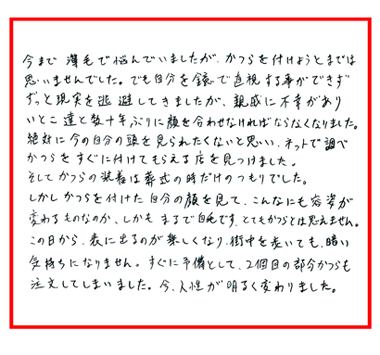 今まで薄毛で悩んでいましたが、かつらを付けようとまでは
思いませんでした。でも自分を鏡で直視する事ができず
ずっと現実を逃避してきましたが、親戚に不幸があり
いとこ達と数十年ぶりに顔を合わせなければならなくなりました。
絶対に今の自分の頭を見られたくないと思い、ネットで調べ
かつらをすぐに付けてもらえる店を見つけました。
そしてかつらの装着は葬式の時だけのつもりでした。
しかしかつらを付けた自分の顔を見て、こんなにも容姿が
変わるものなのか、しかもまるで自毛です、とてもかつらとは思えません。
この日から、表に出るのが楽しくなり、街中を歩いても、暗い
気持ちになりません。すぐに予備として、2個目の部分かつらも
注文してしまいました。今、人生が明るく変わりました。